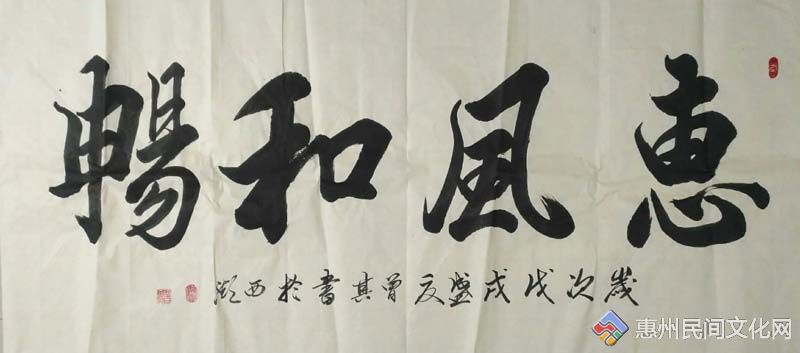 惠風和暢
歲次戊戌盛夏曾其書於西湖
惠州民间文化网